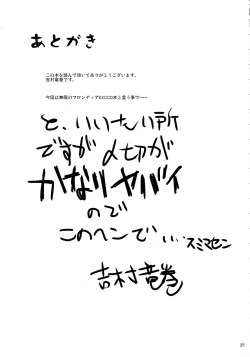 あとがき
この本を読んで頂いてありがとうございます。
吉村竜巻です。
今回は無限のフロンティアEXCEED本と言う事で――
と、いいたい所
ですが〆切が
かなりヤバイ
ので
このヘンで…スミマセン
吉村竜巻